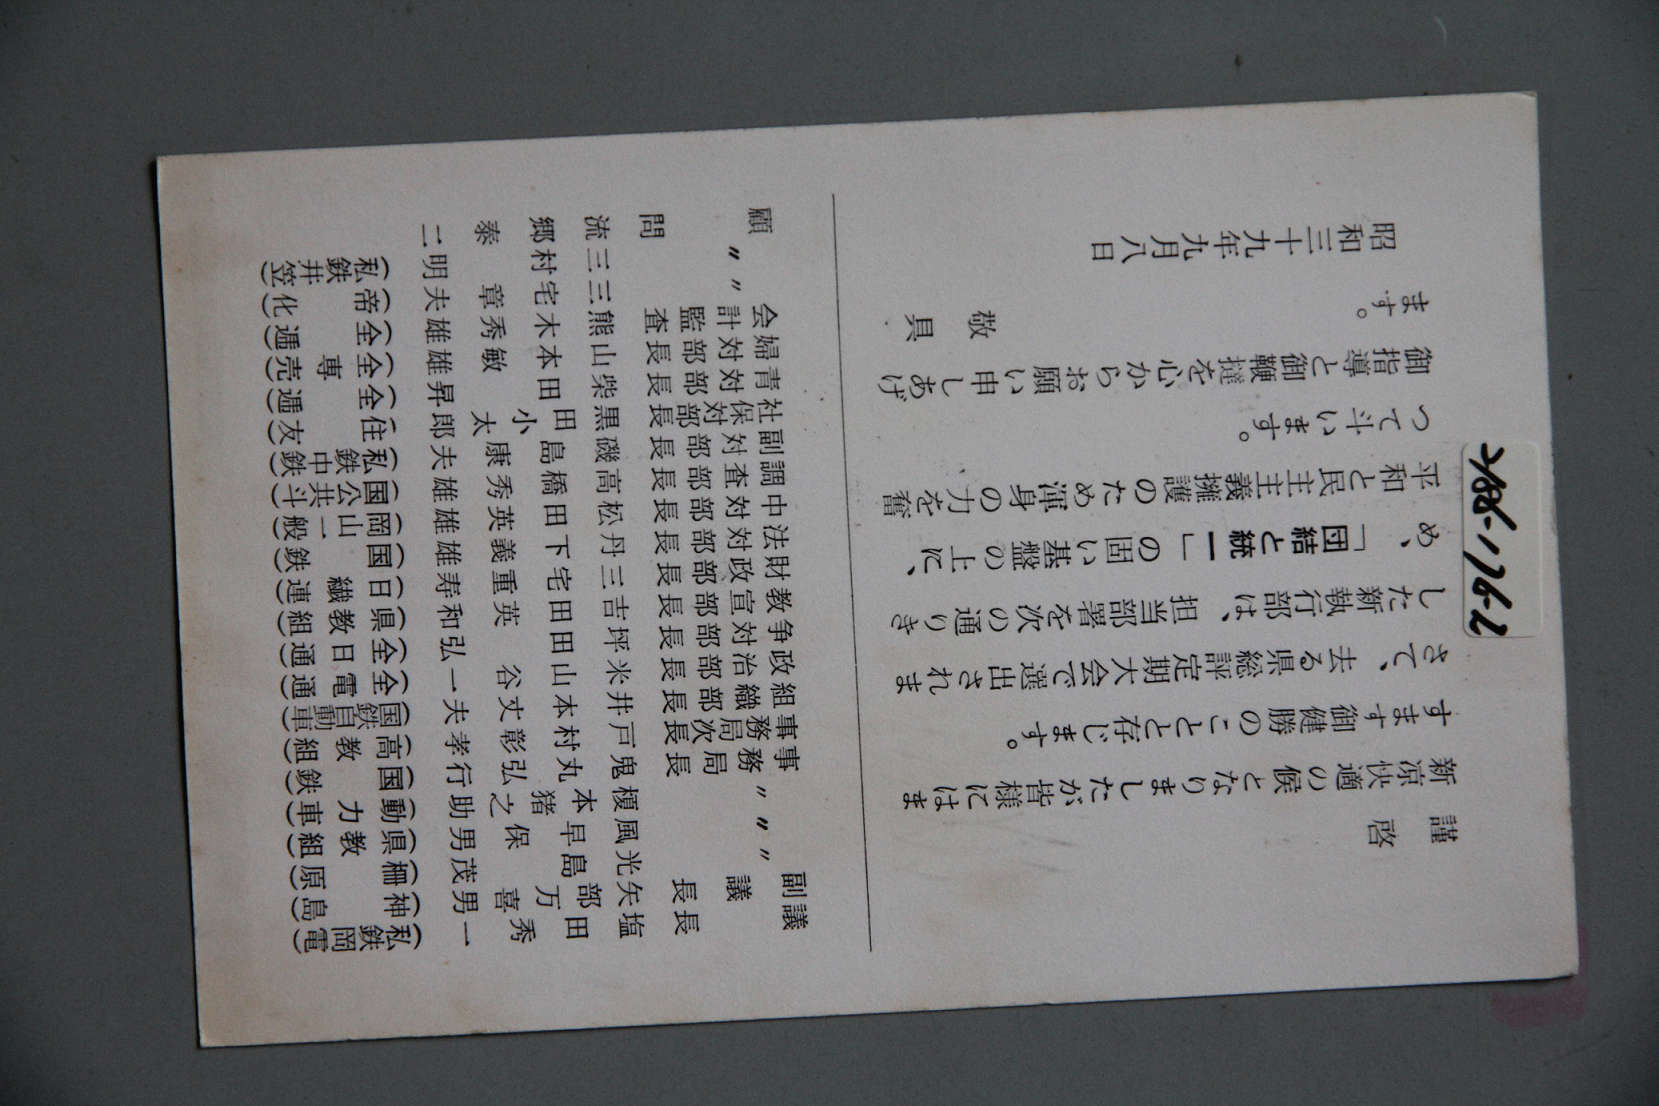 謹啓
新涼快適の候となりましたが皆様にはま
すます御健勝のことと存じます。
さて、去る県総評定期大会で選出されま
した新執行部は、担当部署を次の通りき
め、「団結と統一」の固い基盤の上に、
平和と民主主義擁護のため渾身の力を奮
つて斗います。
御指導と御鞭撻を心からお願い申しあげ
ます。
敬具
昭和三十九年九月八日
議長 塩田秀一 (私鉄岡電)
副議長 矢部万喜男 (神島)
〃 光島茂 (柵原)
〃 風早保男 (県教組)
〃 榎本猪之助 (動力車)
事務局長 鬼丸弘行 (国鉄)
事務局次長 戸村彰孝 (高教組)
組織部長 井本丈夫 (国鉄自動車)
政治部長 米山谷一 (全電通)
争対部長 坪田弘 (全日通)
教宣部長 吉田英和 (県教組)
財政部長 三宅重寿 (日繊連)
法対部長 丹下義雄 (国鉄)
中対部長 松田英雄 (岡山一般)
調査部長 高橋秀雄 (国公共斗)
副対部長 磯島康夫 (私鉄中鉄)
社保対部長 黒田小太郎 (住友)
青対部長 柴田昇 (全逓)
婦対部長 山本敏雄 (全専売)
会計監査 熊木秀雄 (全逓)
〃 三宅章夫 (帝化)
〃 三村明 (私鉄井笠)
顧問 流郷泰二